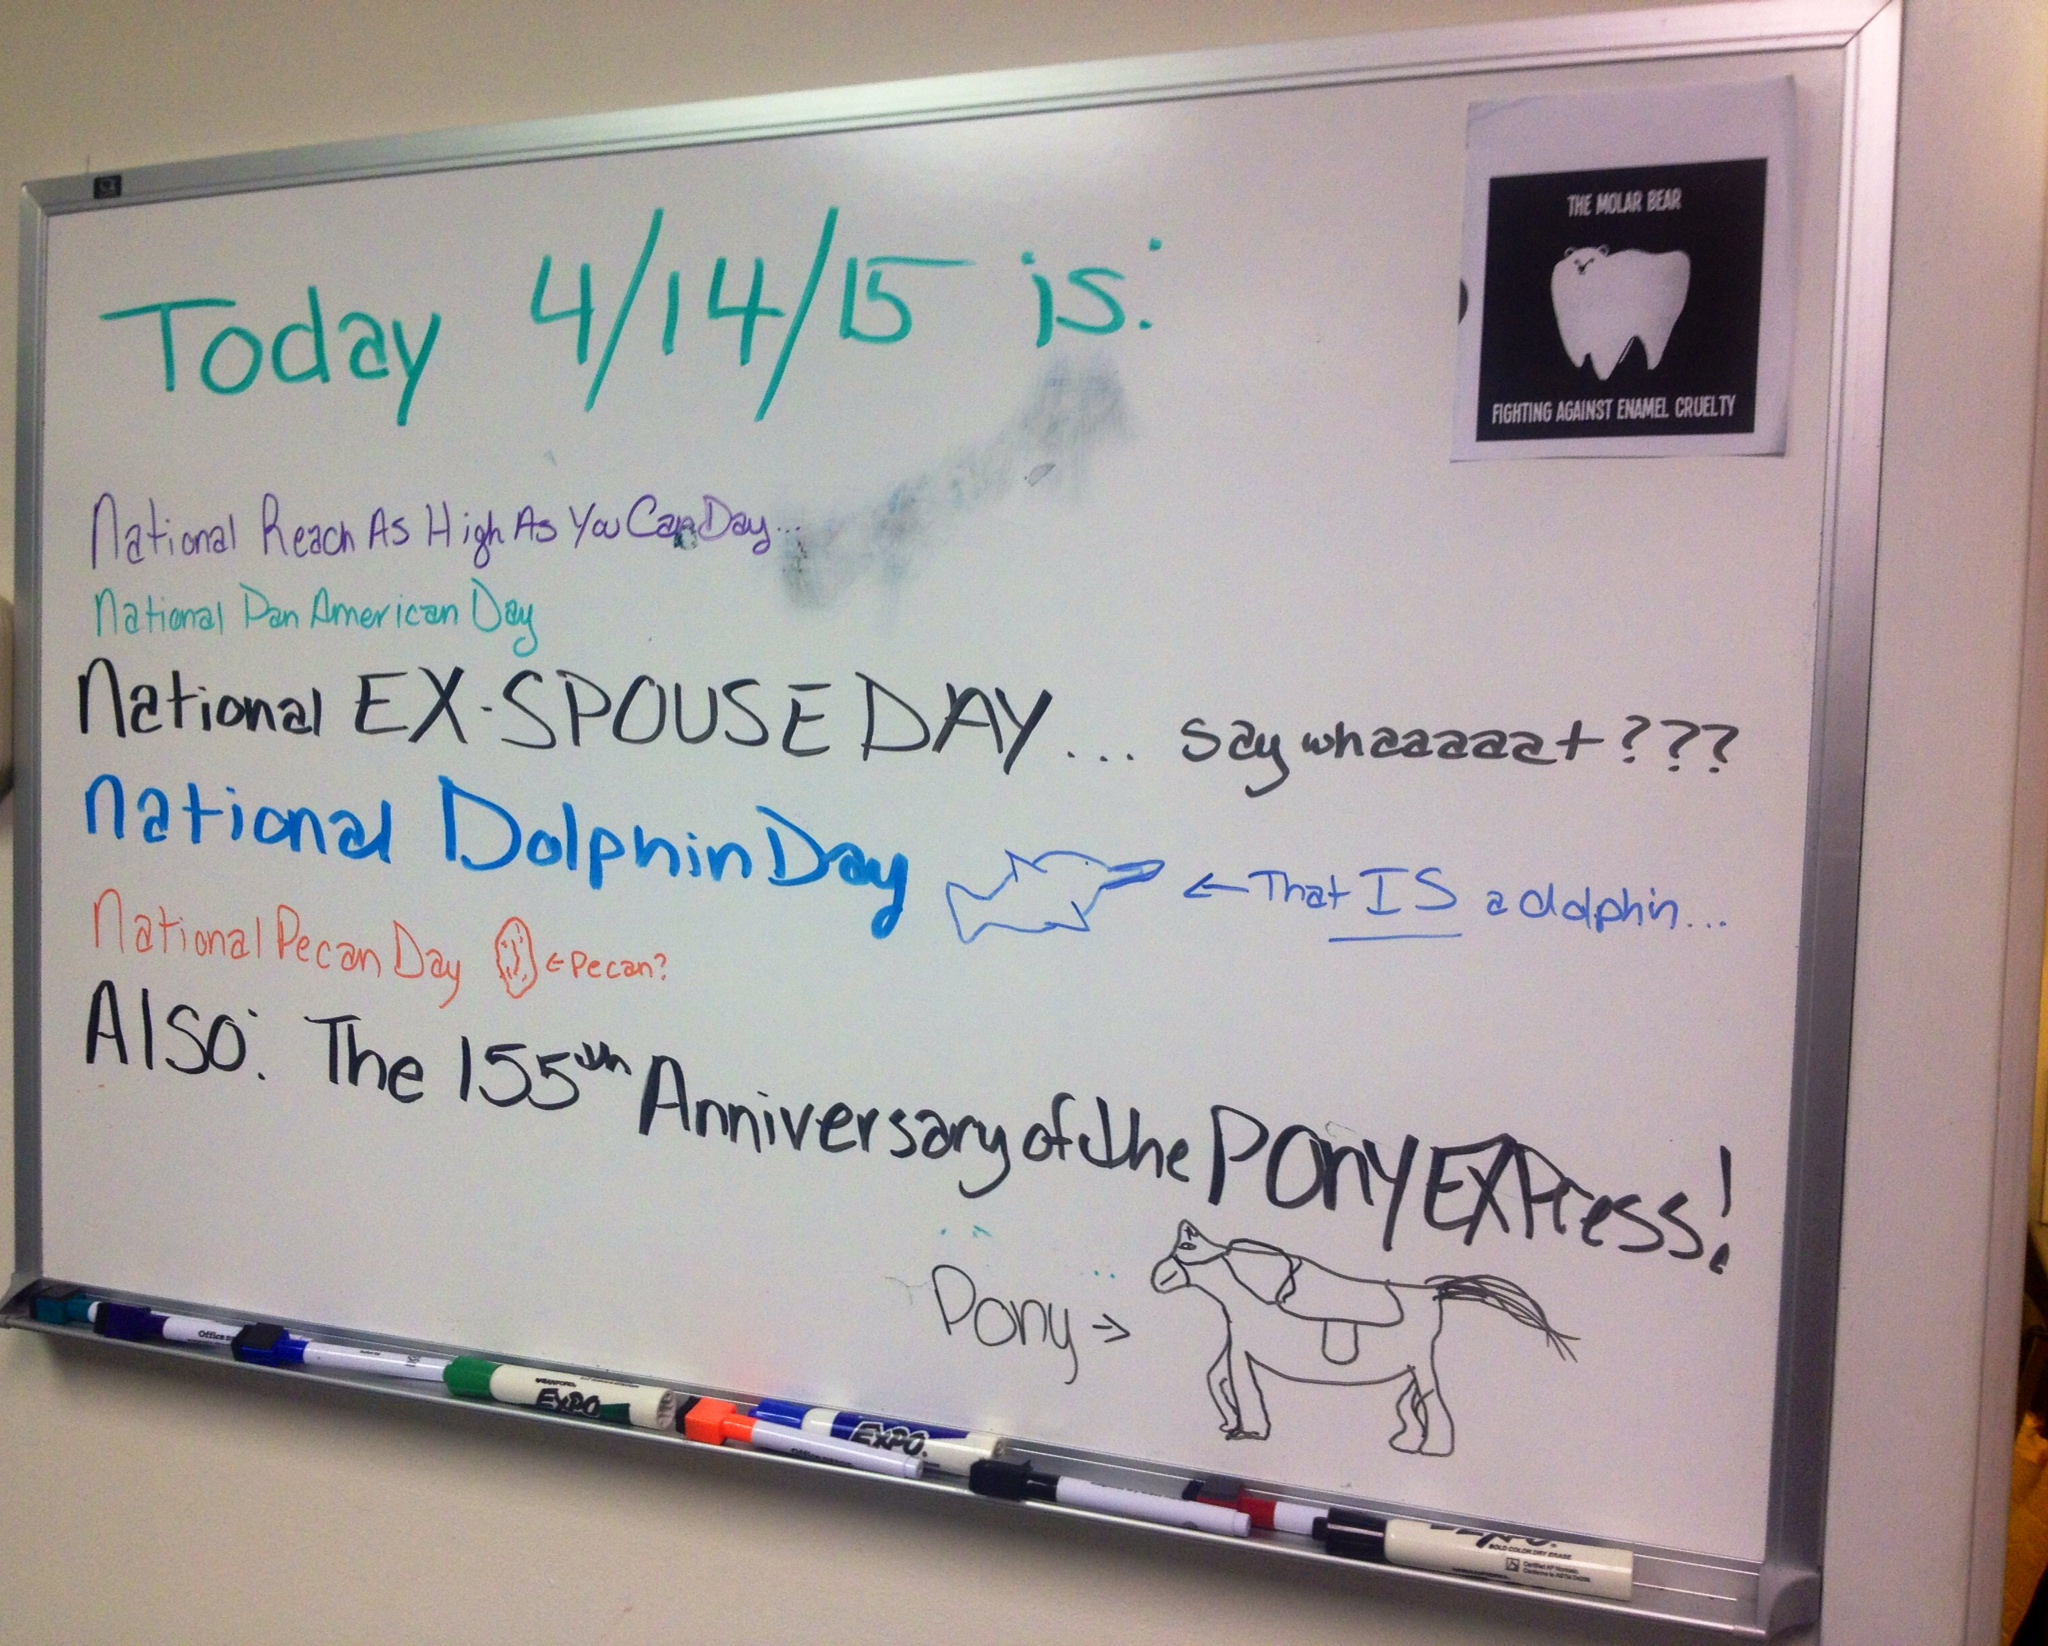 THE MOLAR BEAR
FIGHTING AGAINST ENAMEL CRUELTY
Today 4/14/15 is:
National Reach As High As You Can Day...
National Pan American Day
National EX-SPOUSE DAY... say whaaaaaat???
National Dolphin Day ← That IS a dolphin...
National Pecan Day ← Pecan?
Also: The 155th Anniversary of the PONY EXPress!
Pony →
Office
EXPO
EXPO.
Office
EXPO.
BOLD COLOR DRY ERASE